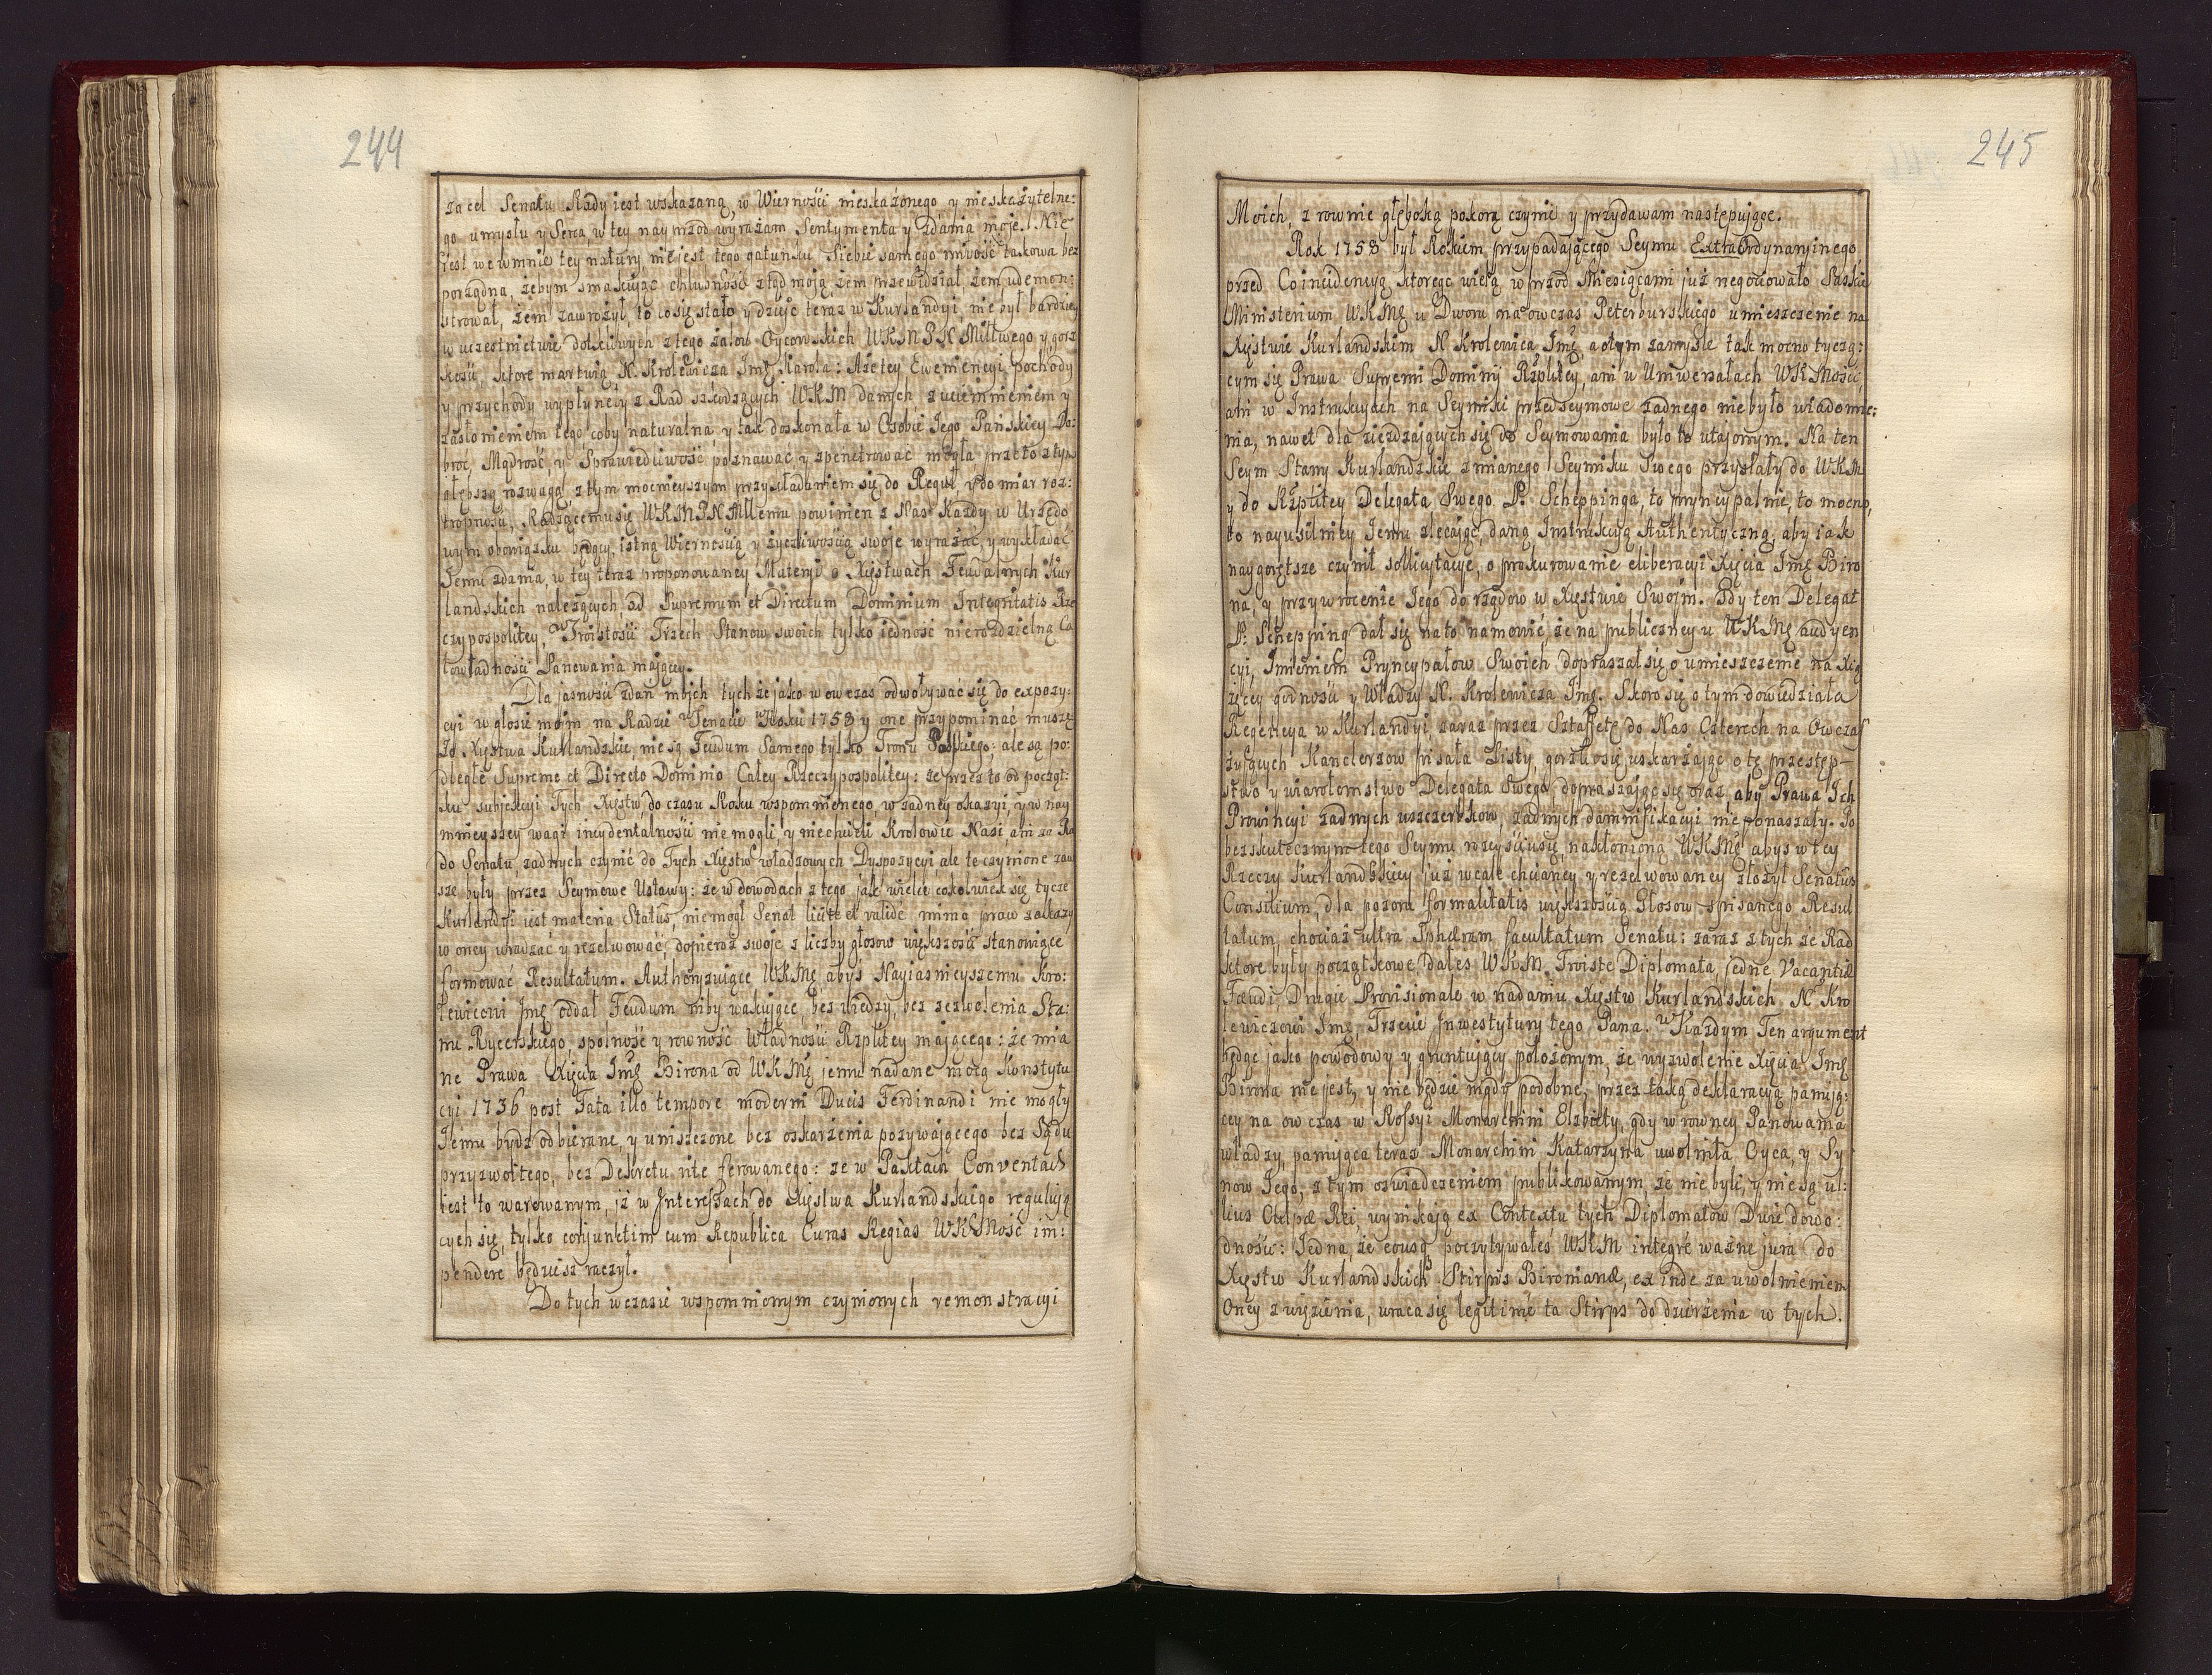 244
za cel Senatu Rady iest wskazaną, w Wiernosci nieskażonego y nieskazytelne:
go umysłu y Serca, w tey nayprzod wyrażam Sentymenta y zdania moje. Nie
jest we mnie tey natury, nie jest tego gatunku Siebie samego miłość takowa bez
porządna, żebym smakując chlubność ztąd moją, żem przewidział, żem udemon:
strował, żem zawrożył, to co się stało y dzieje teraz w Kurlandyi, nie był bardziey
w uczestnictwie dotkliwych z tego żalow Oycowskich WKMPN Miłłwego y gorz
kosci, ktore martwią N. Krolewicza Jmę Karola: Aże tey Eweniencyi pochody
y przychody wypłynęły z Rad szkodzących WKM danych z uciemnieniem y
zasłonieniem tego, coby naturalna y tak doskonała w Osobie Jego Pańskiey Do:
broć, Mądrość, y Sprawiedliwość poznawać y spenetrować mogła, przeto z tym
głębszą rozwagą, z tym mocnieyszym przykładaniem się do Reguł y do miar roz:
tropności, Radzącemu się WKMPNMłłemu powinien z Nas Każdy w Urzędo
wym obowiązku będący, istną Wiernością y życzliwością swoje wyrażać, y wykładać
Jemu zdania, w tey teraz proponowaney Materyi o Xięstwach Feudalnych Kur
landskich należących ad Supremum et Directum Dominium Integritatis Rze
czypospolitey, w Troistosci Trzech Stanow swoich tylko jedność nierozdzielną Ca
łowładnosci Panowania mający.
Dla jasnosci zdań moich tychże jako w ow czas odwoływać się do expozy:
cyi w głosie moim na Radzie w Senacie w Roku 1758 y one przypominać muszę
Iż Xięstwa Kurlandzkie, nie są Feudum Samego tylko Tronu Polskiego; ale są po:
dległe Supremo et Directo Dominio Całey Rzeczypospolitey: że przez to od począt:
ku subjekcyi Tych Xięstw, do czasu Roku wspomnionego, w żadney okazyi, y w nay
mnieyszey wagi incydentalnosci nie mogli, y niechcieli Krolowie Nasi, ani za Ra
dą Senatu, żadnych czynić do Tych Xięstw władzowych Dyspozycyi, ale te czynione zaw
sze były przez Seymowe Ustawy: że w dowodach z tego, jak wiele cokolwiek się tycze
Kurlandyi iest materia Status, nie mogł Senat licite et valide mimo praw zakazy
w oney uradzać y rezolwować, dopieroż swoje z liczby głosow większość stanowiące
formować Resultatum. Authoryzuiące WKMę abyś Nayiasnieyszemu Kro:
lewicowi Jmę oddał Feudum niby wakujące, bez wiedzy, bez zezwolenia Sta:
nu Rycerskiego spolność y rowność Władnosci Rzplitey mającego: że mia
ne Prawa Xięcia Jmę Birona od WKMę jemu nadane mocą Konstytu
cyi 1736 post Fata illo tempore moderni Ducis Ferdinandi nie mogły
Jemu bydź odbierane, y uniszczone bez oskarżenia pozywającego bez Sądu
przyzwoitego, bez Dekretu rite ferowanego: że w Paktach Conventach
iest to warowanym, iż w Interessach do Xięstwa Kurlandskiego regulują
cych się, tylko conjunctim cum Republica Curas Regias WKMość im:
pendere będziesz raczył.
Do tych wczasie wspomnionym czynionych remonstracyi
245
Moich, z rownie głęboką pokorą czynię y przydawam następujące.
Rok 1758 był Rokiem, przypadającego Seymu ExtraOrdynaryinego,
przed Coincidencyą ktorego wielą w przod Miesiącami już negocowało Saskie
Ministerium WKMę u Dworu na owczas Peterburskiego umieszczenie na
Xięstwie Kurlandskim N. Krolewica Jmę, a o tym zamyśle tak mocno tyczą:
cym się Prawa Supremi Dominij Rzplitey, ani w Uniwersałach WKMości,
ani w Instrukcyach na Seymiki przedseymowe żadnego niebyło uwiadomie:
nia, nawet dla zieżdzających się do Seymowania było to utajonym. Na ten
Seym Stany Kurlandzkie zmianego Seymiku Swego przysłały do WKM
y do Rzplitey Delegata Swego P. Scheppinga, to pryncypalnie, to mocno,
to nayusilniey Jemu zlecając, daną Instrukcyą Authentyczną, aby iak
naygorętsze czynił sollicytacye, o prokurowanie eliberacyi Xięcia Jmę Biro
na, y przywrocenie Jego do rządow w Xięstwie Swoim. Gdy ten Delegat
P. Schepping dał się na to namowić, że na publiczney u WKMę audyen
cyi, Imieniem Pryncypałow Swoich dopraszał się o umieszczenie na Xią
żęcey godnosci y Władzy N. Krolewicza Jmę. Skoro się o tym dowiedziała
Regencya w Kurlandyi zaraz przez Sztaffetę do Nas Czterech na Owczas
żyjących Kanclerzow pisała Listy, gorzko się uskarżając o tę przestęp-
stwo y wiarołomstwo Delegata Swego, dopraszając się oraz, aby Prawa Ich
Prowincyi żadnych uszczerbkow, żadnych damnifikacyi nie ponaszały. Po
bezskutecznym tego Seymu rozeysciu się, nakłonioną WKMę abyś w tey
Rzeczy Kurlandskiey już wcale chcianey y rezolwowaney złożył Senatus
Consilium, dla pozoru formalitatis większością Głosow spisanego Resul
tatum, chociaż ultra Sphæram facultatum Senatu: zaraz z tych że Rad
ktore były początkowe, dałeś WKM. Troiste Diplomata, jedne Vacantiæ
Feudi, Drugie Provisionale w nadaniu Xięstw Kurlandskich N. Kro
lewiczowi Jmę, Trzecie Inwestytury tego Pana. w Każdym Ten argument
będąc jako powodowy y gruntujący położonym, że wyzwolenie Xięcia Jmę
Birona nie jest, y nie będzie nigdy podobne, przez taką deklaracyą panują:
cey na ow czas w Rossyi Monarchini Elżbiety, gdy w rowney Panowania
władzy, panująca teraz Monarchini Katarzyna uwolniła Oyca, y Sy
now Jego, z tym oswiadczeniem publikowanym, że nie byli, y nie są ul:
lius Culpæ Rei, wynikają ex Contextu tych Diplomatow Dwie dowo:
dnosci: Jedna, że eousq poczytywałeś WKM integre ważne jura do
Xięstw Kurlandskich Stirpis Bironianæ, ex inde za uwolnieniem
Oney z więzienia, wraca się legitime ta Stirps do dzierżenia w tych.